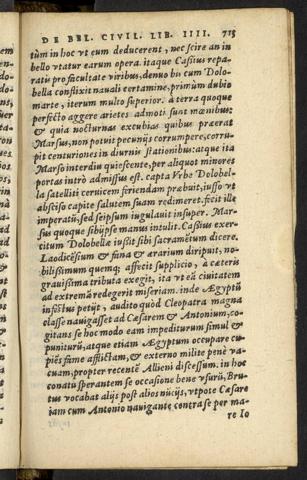 DE BEL. CIVIL. LIB. IIII. 715
tũm in hoc ut eum deducerent, nec scire an in
bello utatur earum opera. itaque Caßius repa-
ratis pro facultate viribus, denuo bis cum Dolo-
bella conflixit nauali certamine, primùm dubio
marte, iterum multo superior. à terra quoque
perfecto aggere arietes admoti sunt mœnibus:
& quia nocturnas excubias quibus præerat
Marsus, non potuit pecunijs corrumpere, corru-
pit centuriones in diurnis stationibus: atque ita
Marso interdiu quiescente, per aliquot minores
portas intrò admissus est. capta Vrbe Dolobel-
la satelliti ceruicem feriendam præbuit, iusso ut
absciso capite salutem suam redimeret. fecit ille
imperatũ, sed seipsum iugulauit insuper. Mar-
sus quoque sibijpse manus intulit. Caßius exer-
citum Dolobellæ iußit sibi sacramẽtum dicere.
Laodicẽsium & fana & ærarium diripuit, no-
bilißimum quemq; affecit supplicio, à cæteris
grauißima tributa exegit, ita ut eã ciuitatem
ad extremã redegerit miseriam. inde Ægyptũ
infestus petijt, audito quòd Cleopatra magna
classe nauigasset ad Cæsarem & Antonium, co-
gitans se hac modo eam impediturum simul &
puniturũ, atque etiam Ægyptum occupare cu-
piẽs fame afflictam, & externo milite penè va-
cuam, propter recentẽ Allieni discessum. in hoc
conatu sperantem se occasione bene usurũ, Bru-
tus vocabat alijs post alios nũcijs, utpote Cæsare
iam cum Antonio nauigante contra se per ma
re Io